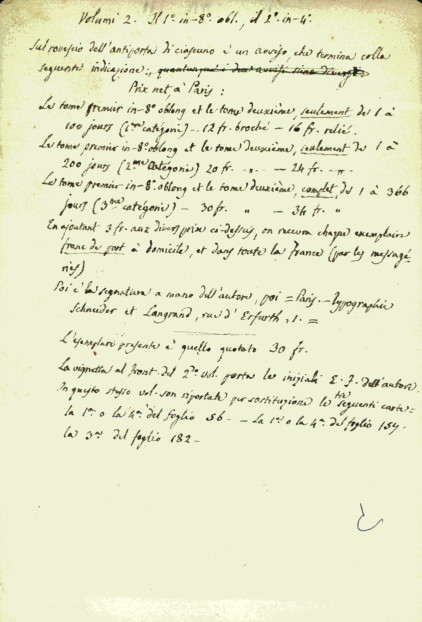 Volumi 2. Il 1º in-8º obl., il 2º in-4º.
Sul rovescio dell'antiporta di ciascuno è un avviso, che termina colla
seguente indicazione, quantunque i due avvisi siano diversi
Prix net à Paris :
Le tome premier in-8º oblong et le tome deuxième, seulement de 1 à
100 jours (1ère catégorie) - 12 fr. broché - 16 fr. relié.
Le tome premier in-8º oblong et le tome deuxième, seulement de 1 à
200 jours (2me catégorie) 20 fr. " - 24 fr. "
Le tome premier in-8º oblong et le tome deuxième, complet, de 1 à 366
jours (3me catégorie) - 30 fr. " - 34 fr. "
En ajoutant 3 fr. aux divers prix ci-dessus, on recevra chaque exemplaire
franc de port à domicile, et dans toute la France (par les messagé-
ries)
Poi è la segnatura a mano dell'autore, poi = Paris. - Typographie
Schneider et Langrand, rue d'Erfurth, 1. =
L'esemplare presente è quello quotato 30 fr.
La vignetta al front. del 2do vol. porta le iniziali E. F. dell'autore.
In questo stesso vol. son riportate per sostituzione le tre seguenti carte =
la 1a o la 4a del foglio 56 - La 1a o la 4a del foglio 154 -
la 3a del foglio 182 -